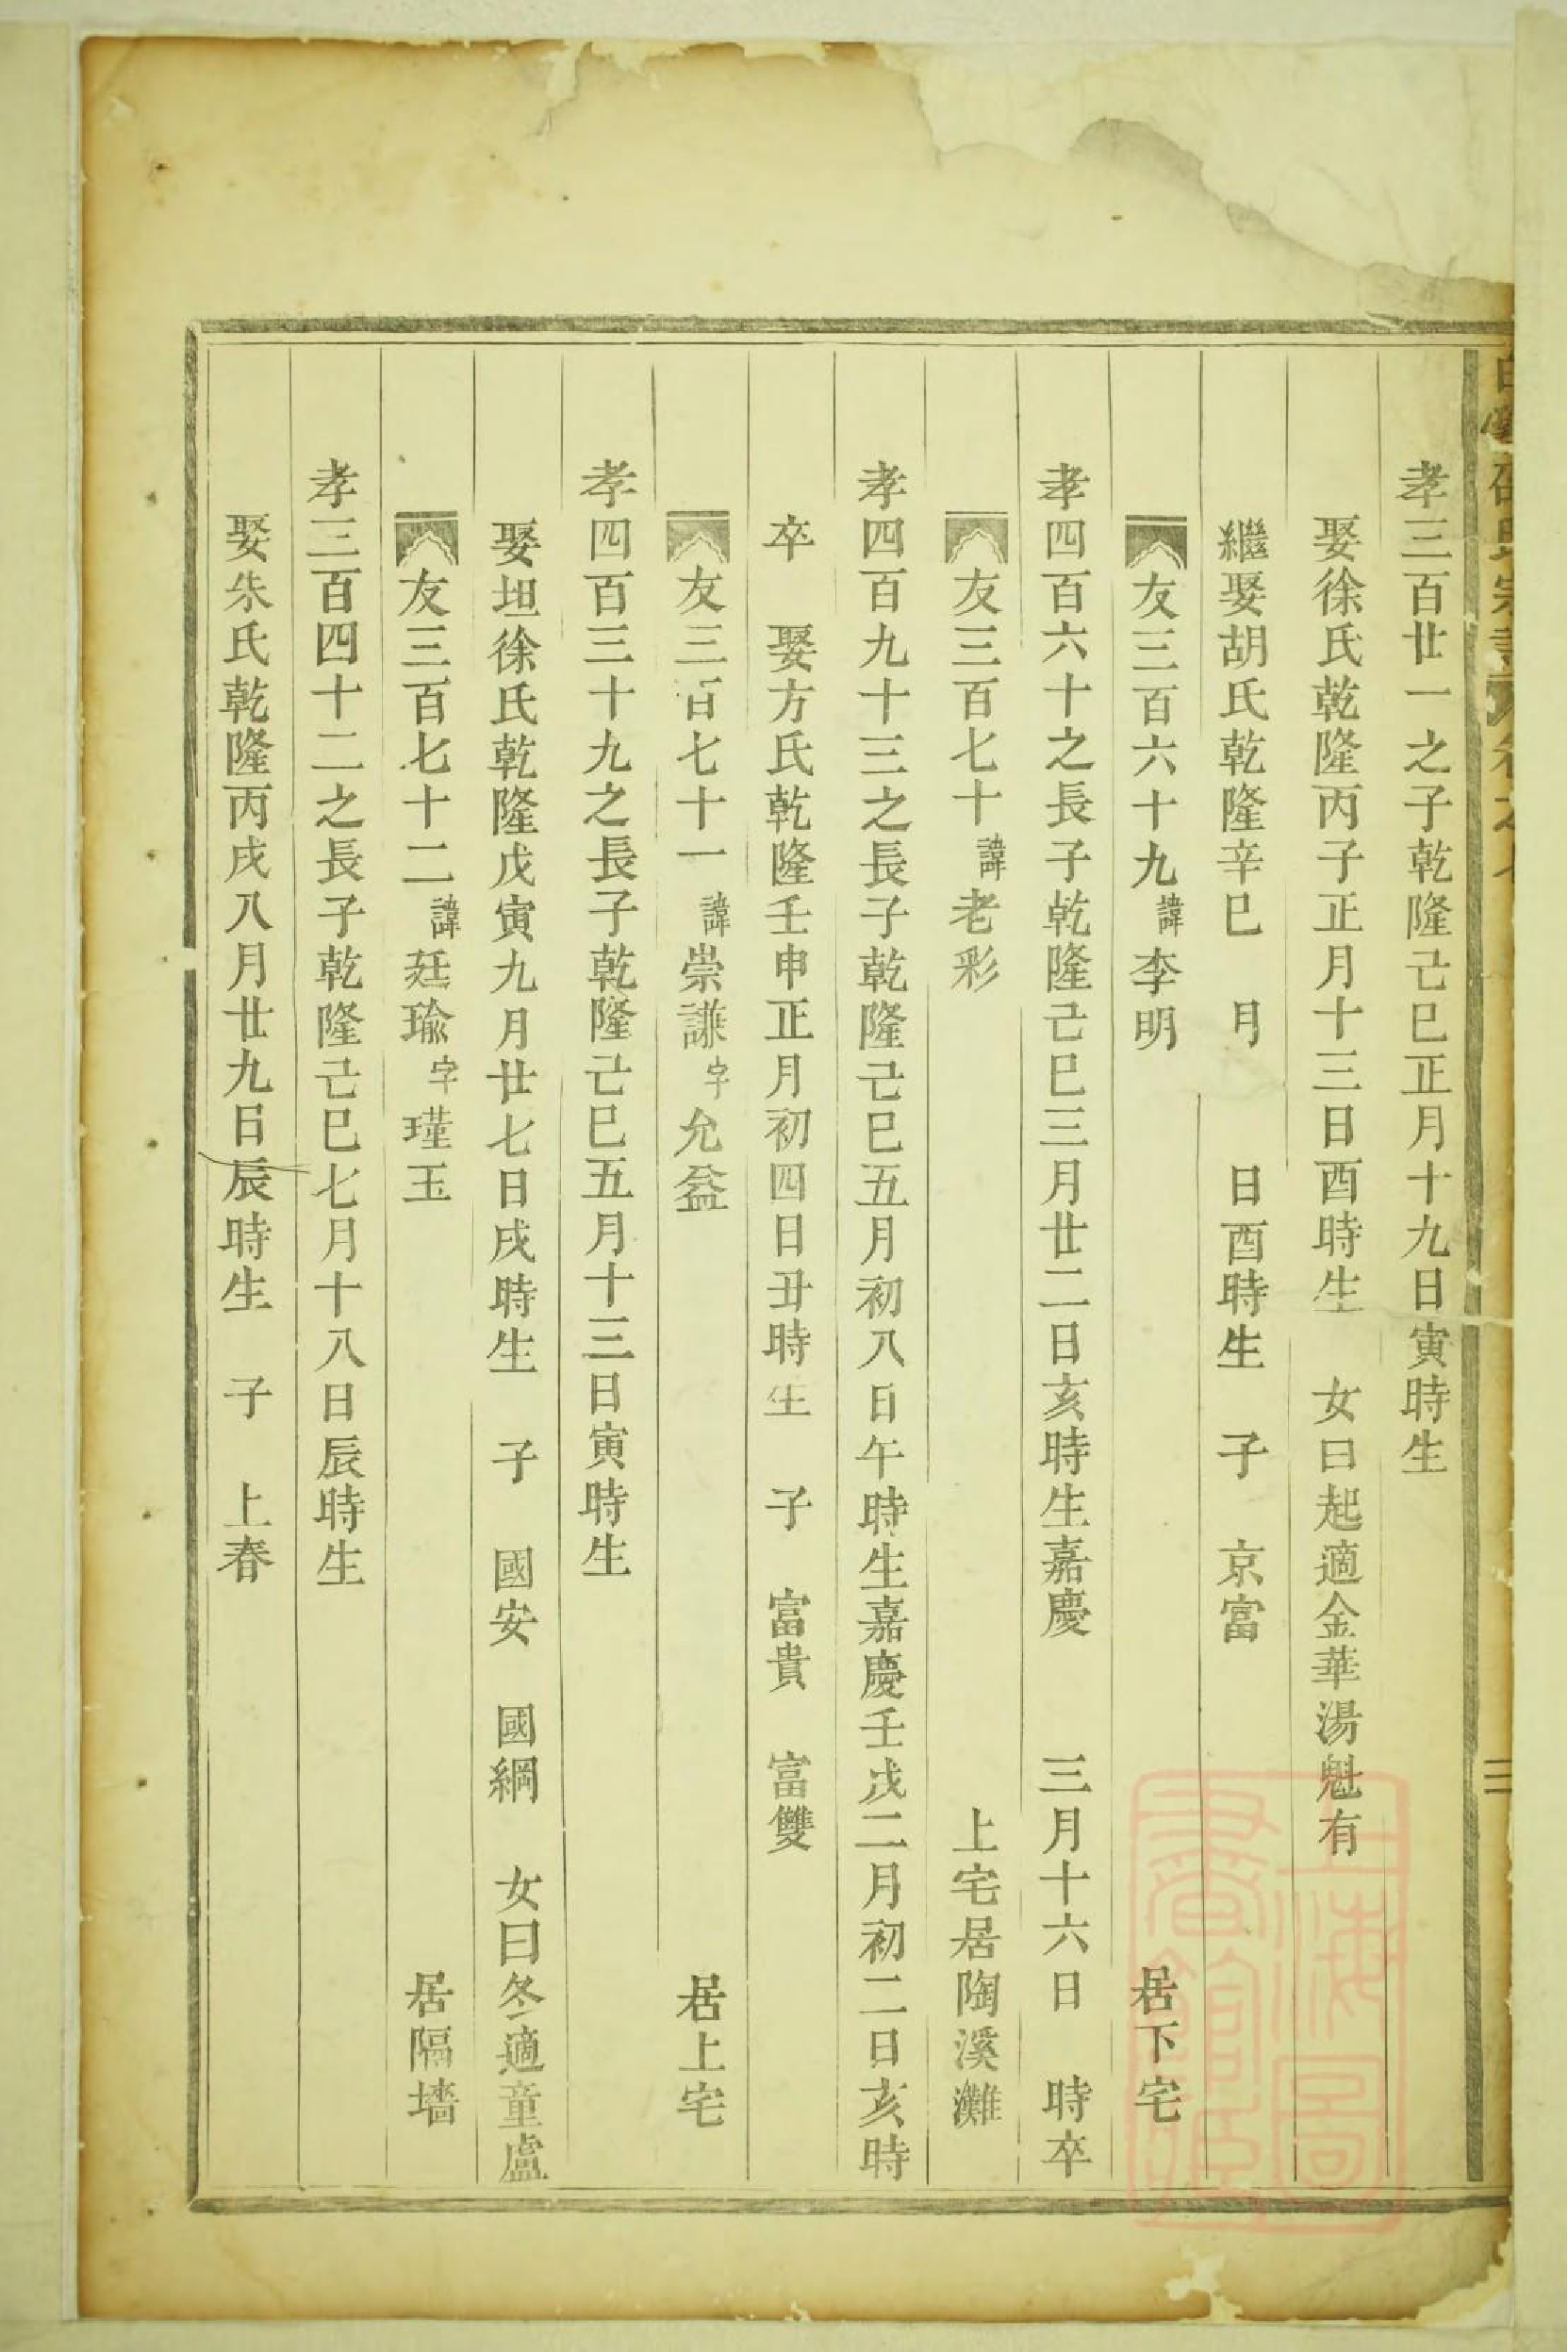 氏宗譜卷之七
三
孝三百廿一之子乾隆己巳正月十九日寅時生
娶徐氏乾隆丙子正月十三日酉時生 女曰起適金華湯魁有
繼娶胡氏乾隆辛巳 月 日酉時生 子 京富
友三百六十九諱李明 居下宅
孝四百六十之長子乾隆己巳三月廿二日亥時生嘉慶 三月十六日 時卒
友三百七十諱老彩 上宅居陶溪灘
孝四百九十三之長子乾隆己巳五月初八日午時生嘉慶壬戌二月初二日亥時
卒 娶方氏乾隆壬申正月初四日丑時生 子 富貴 富雙
友三百七十一諱崇謙字允益 居上宅
孝四百三十九之長子乾隆己巳五月十三日寅時生
娶坦徐氏乾隆戊寅九月廿七日戌時生 子 國安 國綱 女曰冬適童盧
友三百七十二諱廷瑜字瑾玉 居隔墻
孝三百四十二之長子乾隆己巳七月十八日辰時生
娶朱氏乾隆丙戌八月廿九日辰時生 子 上春
上海圖
書館藏